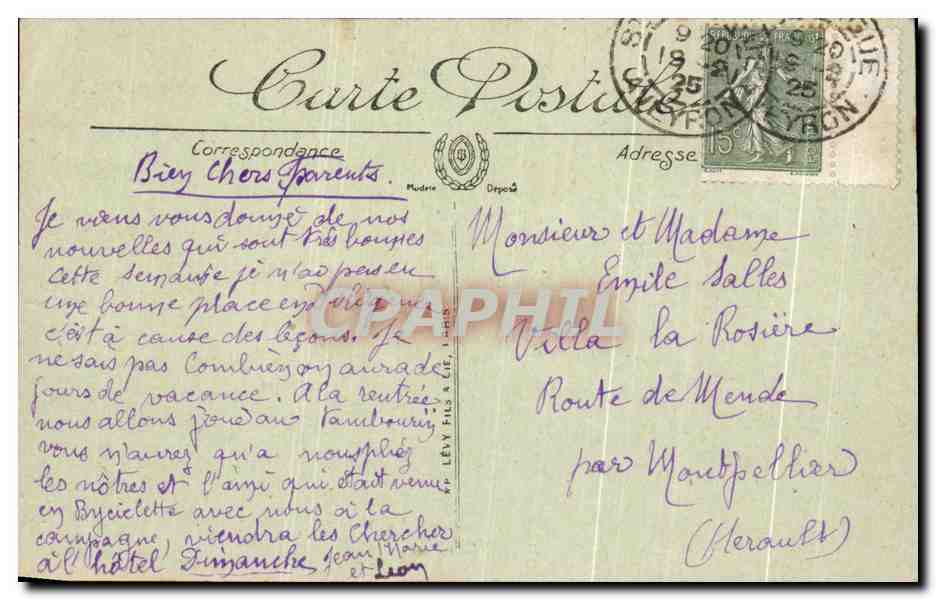 Carte Postale
Correspondance
Adresse
Modèle Déposé
REPUBLIQUE FRANÇAISE
15c
9 20
25
AVEYRON
Bien Chers parents.
Je viens vous donné de nos
nouvelles qui sont très bonnes
cette semaine je n'ai pas eu
une bonne place en
c'est à cause des leçons. Je
ne sais pas Combien on aura de
jours de vacance. A la rentrée
nous allons joué au Tambourin
vous n'aurez qu'a nous
les nôtres et l'ami qui était venu
en Byciclette avec nous à la
campagne, viendra les Chercher
à l'hôtel Dimanche Jean Marie
et Léon
LÉVY FILS & CIE, PARIS
Monsieur et Madame
Emile Salles
Villa la Rosière
Route de Mende
par Montpellier
(Herault)
CPAPHIL